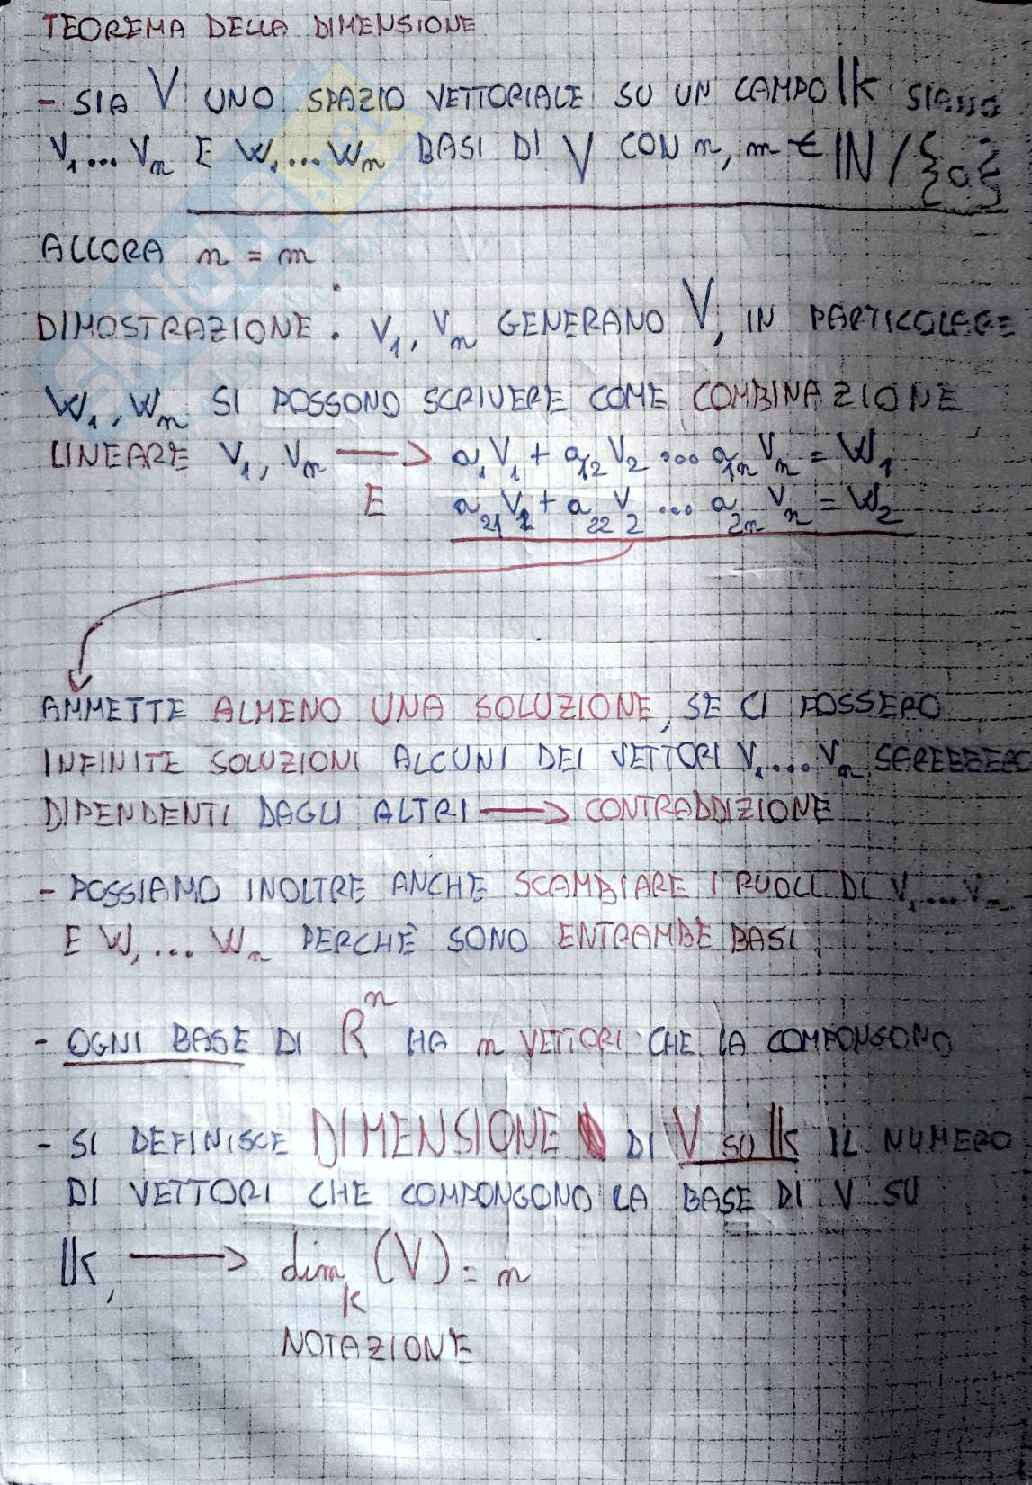 TEOREMA DELLA DIMENSIONE
- SIA V UNO SPAZIO VETTORIALE SU UN CAMPO 𝕂 SIANO
V₁...Vₙ E W₁...Wₘ BASI DI V CON n, m ∈ ℕ/{0}
ALLORA n = m
DIMOSTRAZIONE. V₁, Vₙ GENERANO V, IN PARTICOLARE
W₁, Wₘ SI POSSONO SCRIVERE COME COMBINAZIONE
LINEARE V₁, Vₙ → a₁V₁ + a₁₂V₂ ... a₁ₙVₙ = W₁
E a₂₁V₁ + a₂₂V₂ ... a₂ₙVₙ = W₂
AMMETTE ALMENO UNA SOLUZIONE, SE CI FOSSERO
INFINITE SOLUZIONI ALCUNI DEI VETTORI V₁...Vₙ SAREBBERO
DIPENDENTI DAGLI ALTRI → CONTRADDIZIONE
- POSSIAMO INOLTRE ANCHE SCAMBIARE I RUOLI DI V₁...Vₙ
E W₁...Wₙ PERCHÈ SONO ENTRAMBE BASI
- OGNI BASE DI Rⁿ HA n VETTORI CHE LA COMPONGONO
- SI DEFINISCE DIMENSIONE DI V SU 𝕂 IL NUMERO
DI VETTORI CHE COMPONGONO LA BASE DI V SU
𝕂, → dimₖ(V) = n
NOTAZIONE